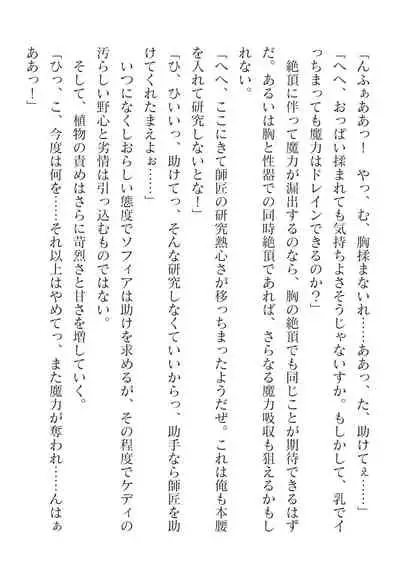 「んふぁああっ！　やっ、む、胸揉まないれ……ああっ、た、助けてぇ……」
「へへ、おっぱい揉まれても気持ちよさそうじゃないすか。もしかして、乳でイ
っちまっても魔力はドレインできるのか？」
　絶頂に伴って魔力が漏出するのなら、胸の絶頂でも同じことが期待できるはず
だ。あるいは胸と性器での同時絶頂であれば、さらなる魔力吸収も狙えるかもし
れない。
「へへ、ここにきて師匠の研究熱心さが移っちまったようだぜ。これは俺も本腰
を入れて研究しないとな！」
「ひ、ひいいっ、助けてっ、そんな研究しなくていいからっ、助手なら師匠を助
けてくれたまえよぉ……」
　いつになくしおらしい態度でソフィアは助けを求めるが、その程度でケディの
汚らしい野心と劣情は引っ込むものではない。
　そして、植物の責めはさらに苛烈さと甘さを増していく。
「ひっ、こ、今度は何を……それ以上はやめてっ、また魔力が奪われ……んはぁ
ああっ！」